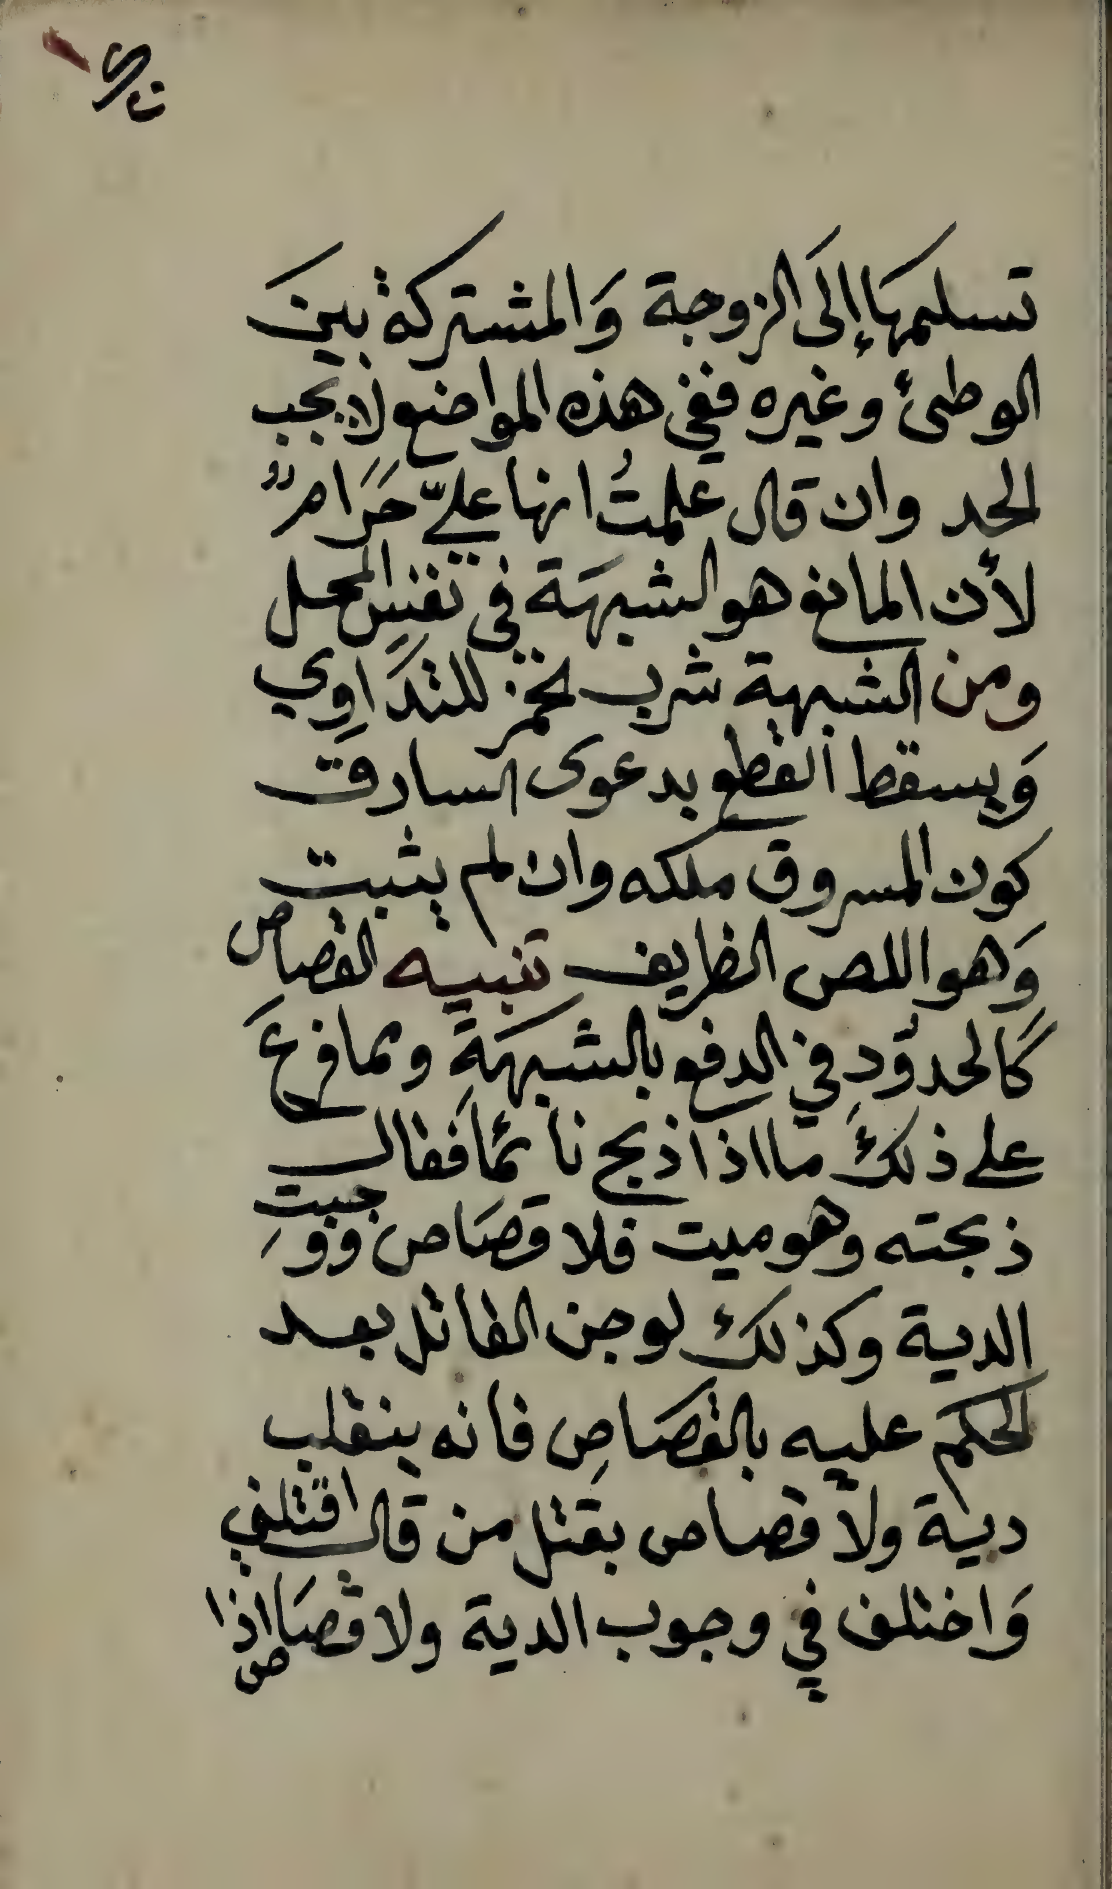 تسليمها إلَى الزوجة وَالمشتركة بينَ
الوطئ وغيره ففي هذه المواضع لا يجب
الحد وان قال علمتُ انها عليّ حَرَامٌ
لأن المانع هو الشبهَة في نفسِ المحل
ومن الشبهة شرب الخمر للتدَاوِي
وَيسقط القطع بدعوى السارق
كون المسروق ملكه وان لم يثبت
وَهو اللص الظريف تنبيه القصاص
كَالحدوُد في الدفع بالشبهَةِ ومما فرعَ
على ذلكَ ما اذا ذبح نائمًا فقال
ذبحته وهو ميت فلا قصَاص ووجبت
الدية وكذلك لو جن القاتل بعد
الحكم عليه بالقصَاصِ فانه ينقلب
دية ولا قصاص بقتل من قال اقتلني
وَاختلف في وجوب الدية ولا قصَاص اذا